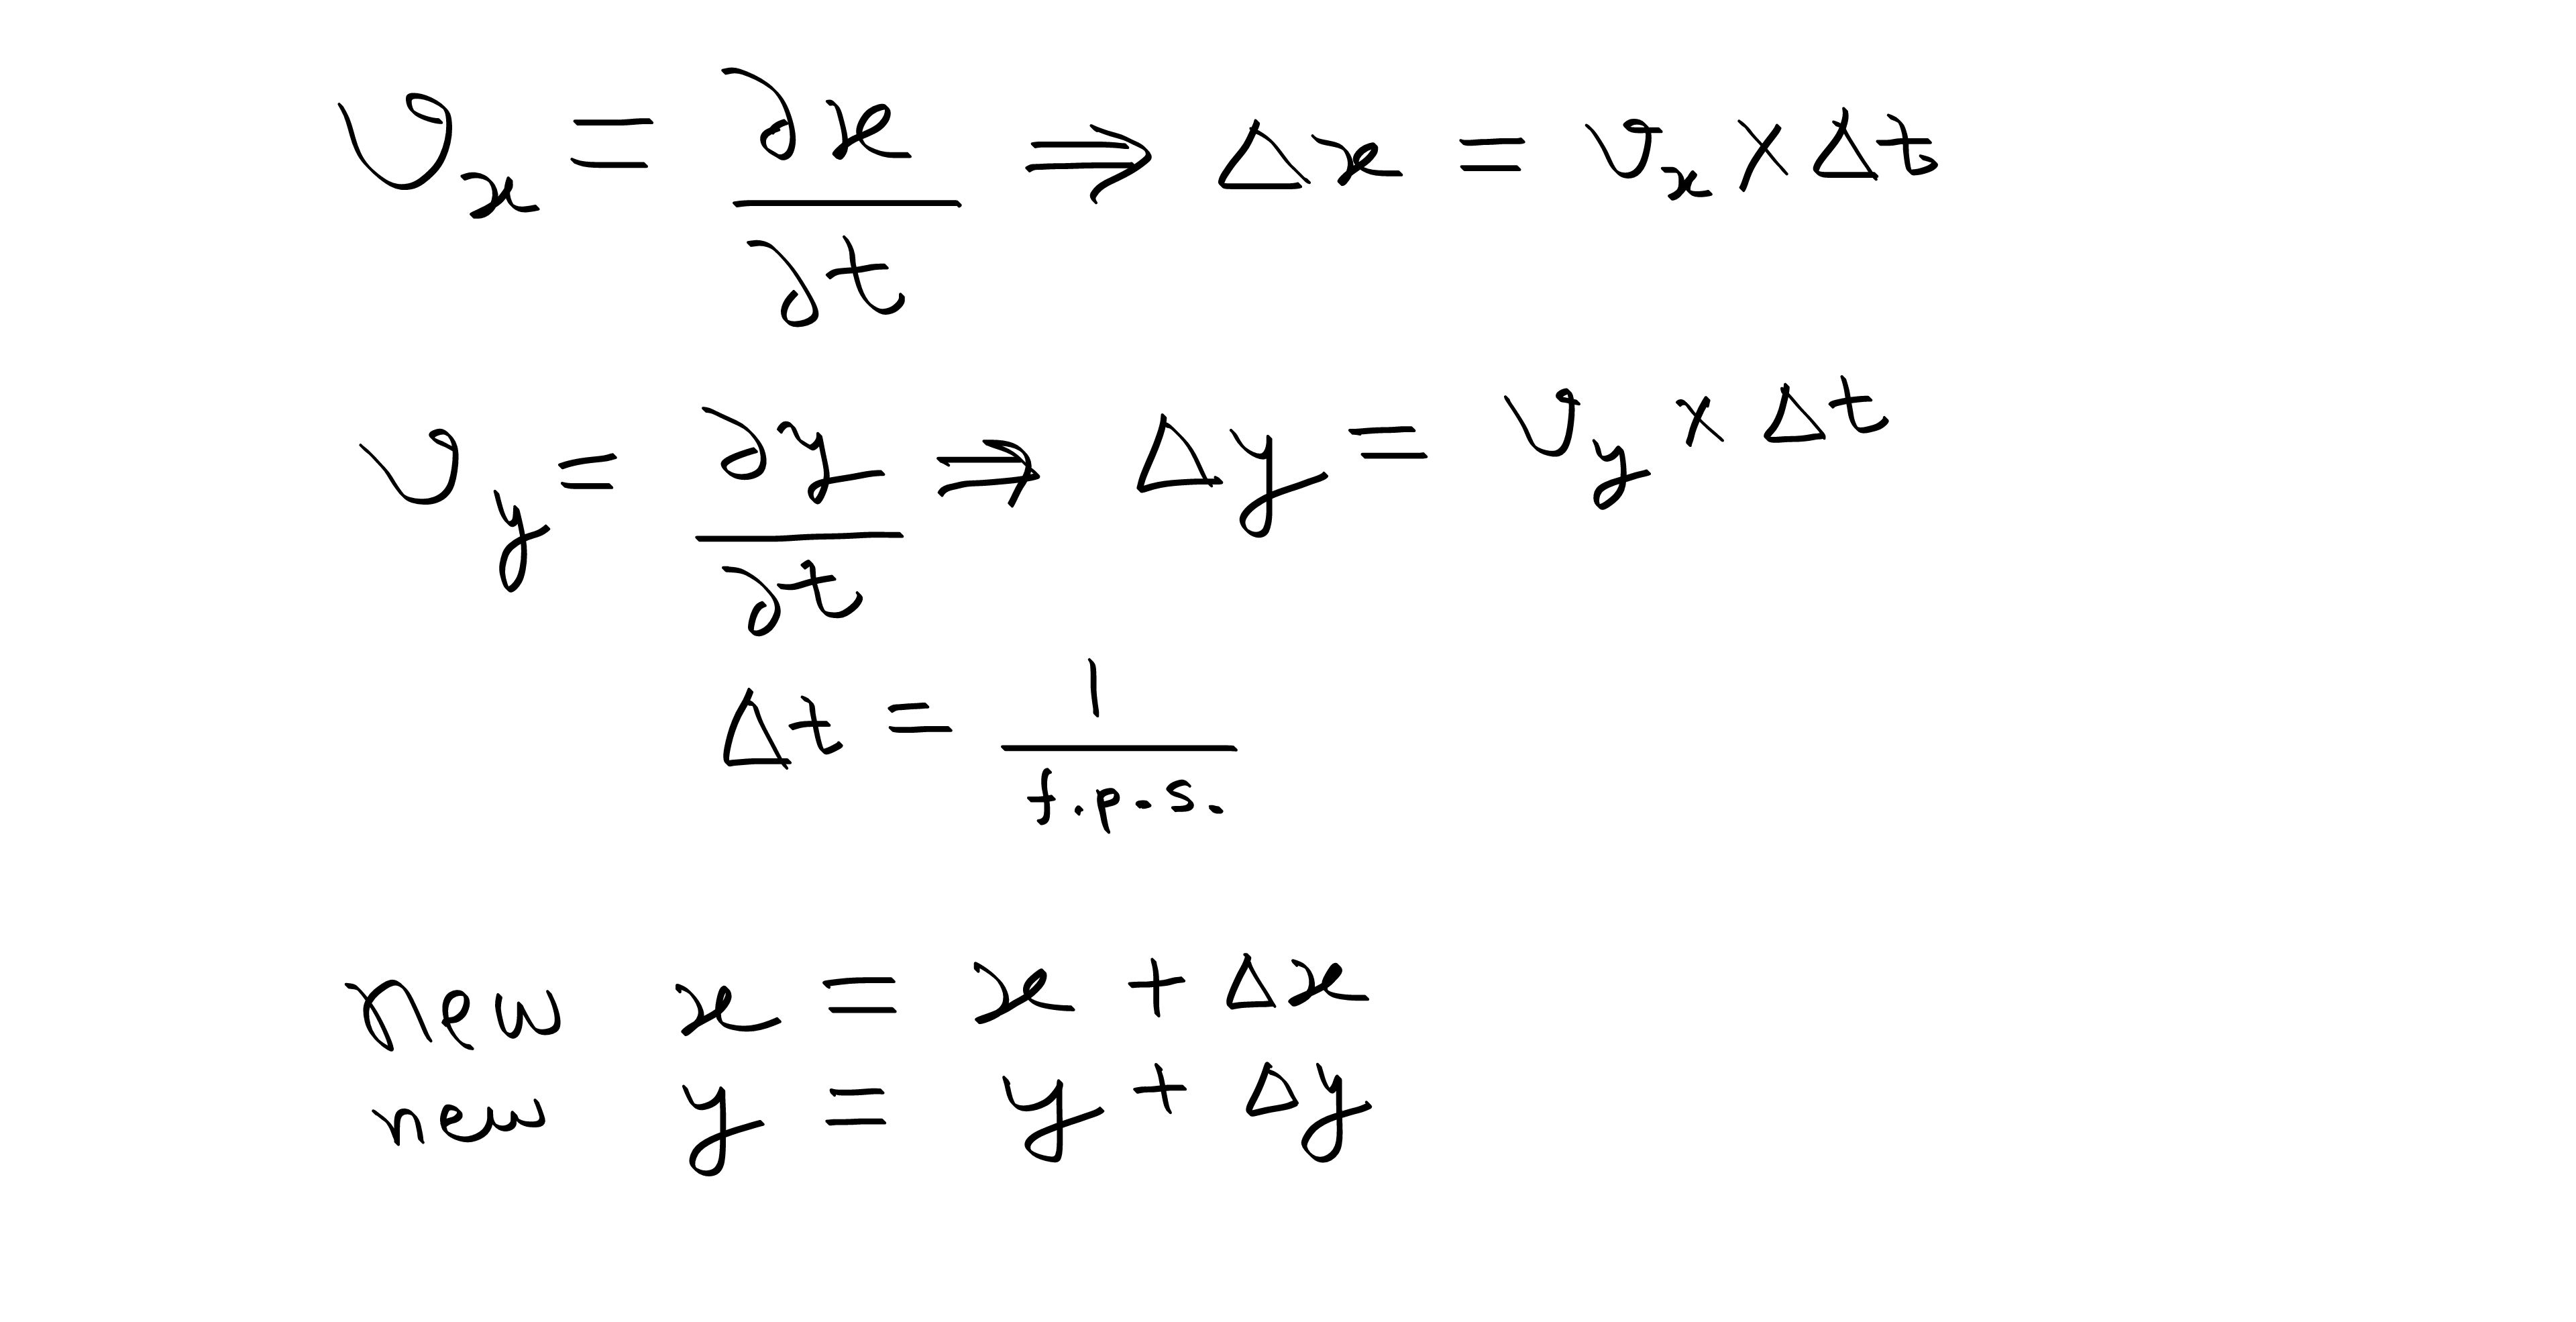 v_x = ∂x/∂t ⇒ Δx = v_x × Δt
v_y = ∂y/∂t ⇒ Δy = v_y × Δt
Δt = 1/f.p.s.
new x = x + Δx
new y = y + Δy